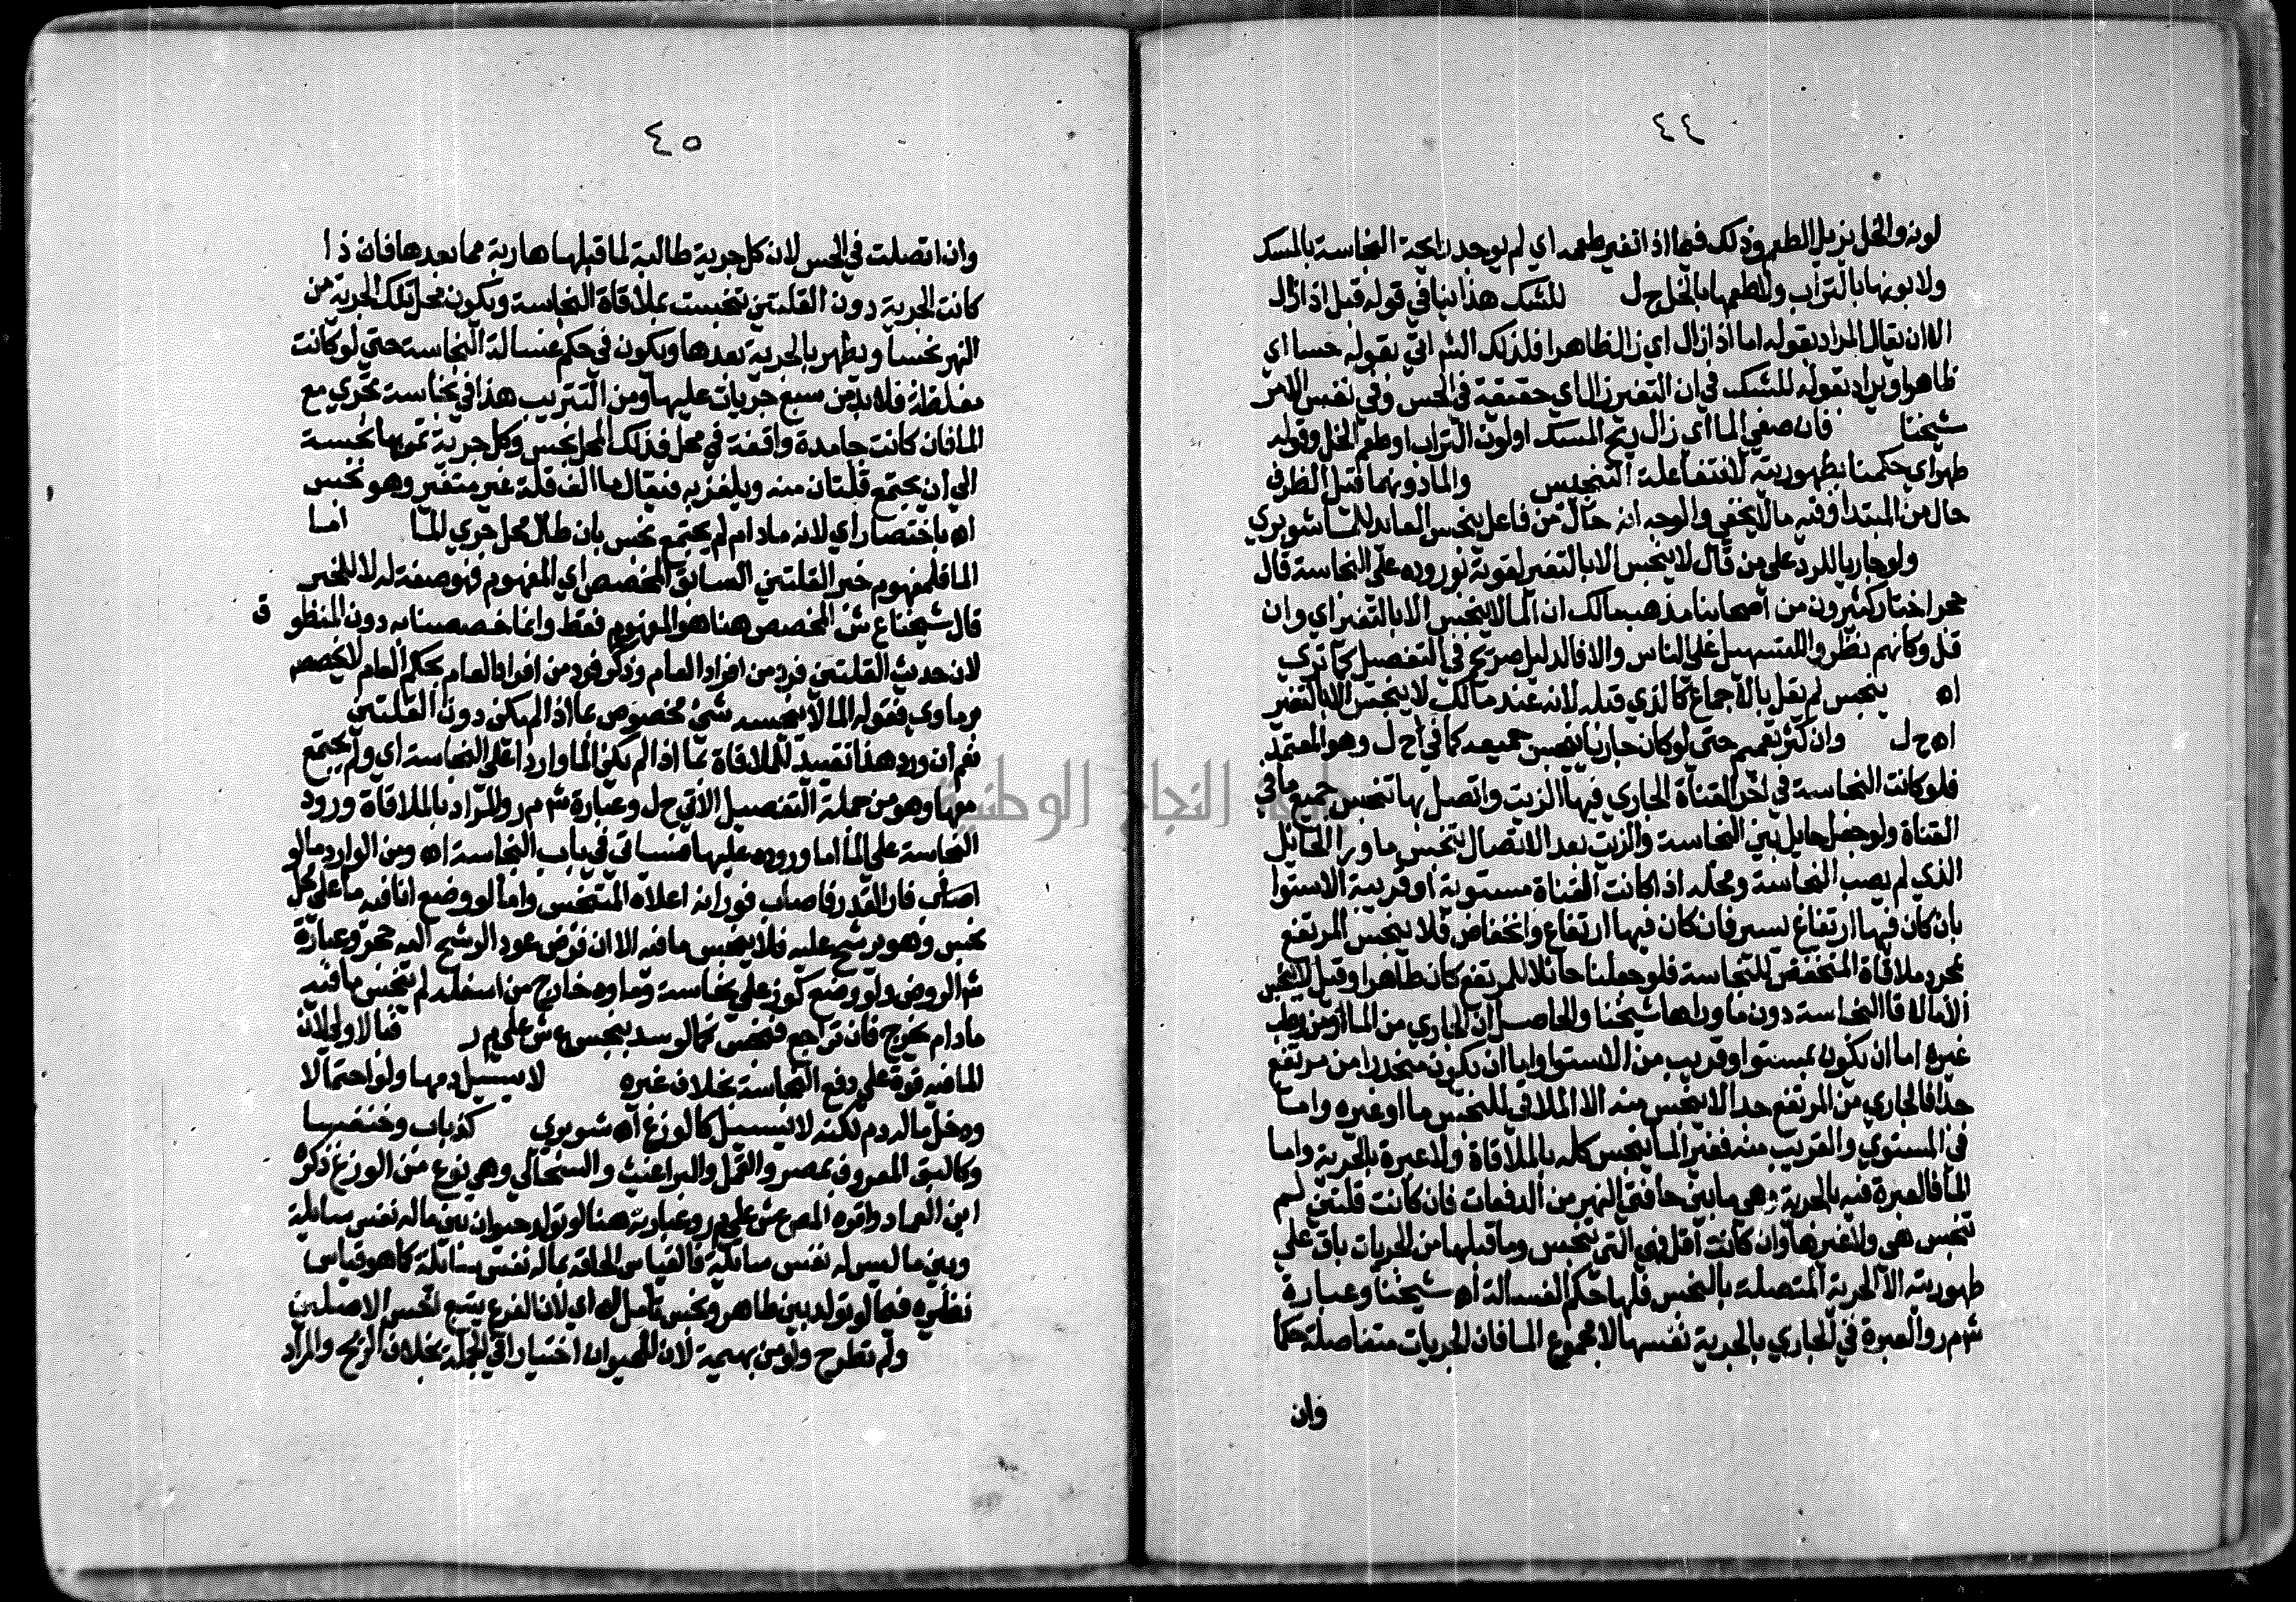 ٤٤
لونه والخل يزيل الطعم وذلك فيما اذا تغير طعمه اي لم يوجد رايحة النجاسة بالمسك
ولا لونها بالتراب ولا طعمها بالخل ح ل للشك هذا ينافي قوله قبل اذا زال
الا ان يقال المراد بقوله اما اذا زال اي زال ظاهرا فلذلك الشراتي بقوله حسا اي
ظاهرا ويراد بقوله للشك في ان التغير زال اي حقيقة في الحس وفي نفس الامر
شيخنا فان صفي الما اي زال ريح المسك او لون التراب او طعم الخل وقوله
طهر اي حكمنا بطهوريته لانتفا علة التنجيس والما دونهما قيل الظرف
حال من المبتدا وفيه ما لا يخفى والوجه انه حال من فاعل ينجس العايد للما شوبري
ولو جاريا للرد على من قال لا ينجس الا بالتغير لقوته بوروده على النجاسة قال
حجر اختار كثيرون من اصحابنا مذهب مالك ان الما لا ينجس الا بالتغير اي وان
قل وكانهم نظروا للتسهيل على الناس والا فالدليل صريح في التفصيل كما ترى
اه ينجس لم يقل بالاجماع كالذي قبله لانه عند مالك لا ينجس الا بالتغير
اه ح ل وان كثر تعميم حتى لو كان جاريا ينجس جميعه كما في ح ل وهو المعتمد
فلو كانت النجاسة في اخر القناة الجاري فيها الزيت واتصل بها تنجس جميع ما في
القناة ولو جعل حايل بين النجاسة والزيت بعد الاتصال يتنجس ما ورا الحائل
الذي لم يصب النجاسة ومحله اذا كانت القناة مستوية او قريبة الاستوا
بان كان فيها ارتفاع يسير فان كان فيها ارتفاع وانخفاض فلا ينجس المرتفع
بمجرد ملاقاة المنخفض للنجاسة فلو جعلنا حائلا للمرتفع كان طاهرا وقيل لا ينجس
الا ما لاقا النجاسة دون ما وراها شيخنا والحاصل ان الجاري من الما ومن رطب
غيره اما ان يكون بمستوا وقريب من الاستوا واما ان يكون منحدرا من مرتفع
جدا فالجاري من المرتفع جدا لا ينجس منه الا الملاقي للنجس ما او غيره واما
في المستوي والقريب منه فغير الما ينجس كله بالملاقاة ولا عبرة بالجرية واما
الما فالعبرة فيه بالجرية وهي ما بين حافتي النهر من الدفعات فان كانت قلتين لم
تنجس هي ولا غيرها وان كانت اقل فهي التي تنجس وما قبلها من الجريات باق على
طهوريته الا الجرية المتصلة بالنجس فلها حكم الغسالة اه شيخنا وعبارة
ش م ر والعبرة في الجاري بالجرية نفسها لا مجموع الما فان الجريات متفاصلة حكما
وان
٤٥
وان اتصلت في الحس لان كل جرية طالبة لما قبلها هاربة مما بعدها فان ذا
كانت الجرية دون القلتين تنجست بملاقاة النجاسة ويكون محل تلك الجرية من
النهر نجسا ويطهر بالجرية بعدها ويكون في حكم غسالة النجاسة حتى لو كانت
مغلظة فلا بد من سبع جريات عليها ومن التتريب هذا في نجاسة تجري مع
الما فان كانت جامدة واقفة في محل فذلك المحل نجس وكل جرية تمر بها نجسة
الى ان يجتمع قلتان منه ويلغز به فيقال ما الف قلة غير متغير وهو نجس
اه باختصار اي لانه ما دام لم يجتمع نجس بان طال محل جري الما اما
الما فلمفهوم خبر القلتين السابق المخصص اي المفهوم فهو صفة له لا للخبر
قال شيخنا ع ش المخصص هنا هو المفهوم فقط وانما خصصنا به دون المنطوق
لان حديث القلتين فرد من افراد العام وذكر فرد من افراد العام بحكم العام لا يخصص
برماوي فقوله الما لا ينجسه شي مخصوص بما اذا لم يكن دون القلتين
نعم ان ورد هذا تقييد للملاقاة بما اذا لم يكن الما واردا على النجاسة اي ولم يجتمع
معها وهو من جملة التفصيل الاتي ح ل وعبارة ش م ر والمراد بالملاقاة ورود
النجاسة على الما اما وروده عليها فسياتي في باب النجاسة اه ومن الوارد ما لو
اصاب فار القدر فاصاب فورانه اعلاه المتنجس واما لو وضع انا فيه ما على محل
نجس وهو يرشح عليه فلا ينجس ما فيه الا ان فرض عود الرشح اليه حجر وعبارة
ش الروض ولو وضع كوز على نجاسة وماوه خارج من اسفله لم ينجس ما فيه
ما دام يخرج فان تراجع فينجس كما لو سد بنجس ع ش على م ر فيا لاولى لان
للما فيه قوة على دفع النجاسة بخلاف غيره لا يسيل دمها ولو احتمالا
ودخل ما له دم لكنه لا يسيل كالوزغ اه شوبري كذباب وخنفسا
وكالبق المعروف بمصر والقمل والبراغيث والسحالي وهي نوع من الوزغ ذكره
ابن العماد واقره المص ع ش على م ر وعبارته هنا لو تولد حيوان بين ما له نفس سائلة
وبين ما ليس له نفس سائلة فالقياس الحاقه بما له نفس سائلة كما هو قياس
نظيره فيما لو تولد بين طاهر ونجس تامل اه اي لان الفرع يتبع اخس الاصلين
ولم تطرح ولو من بهيمة لان للحيوان اختيارا في الجملة بخلاف الريح والمراد
جامعة النجاح الوطنية